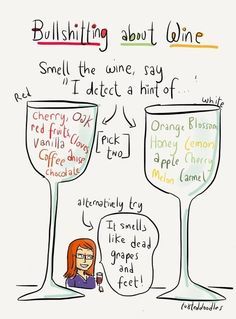 Bullshitting about Wine
Smell the wine, say
"I detect a hint of..."
Red
white
cherry, Oak
red fruits
Vanilla Cloves
Coffee
chocolate
[Pick
two]
Orange Blossom
Honey Lemon
apple Cherry
Melon Carmel
alternatively try
It smells
like dead
grapes
and
feet!